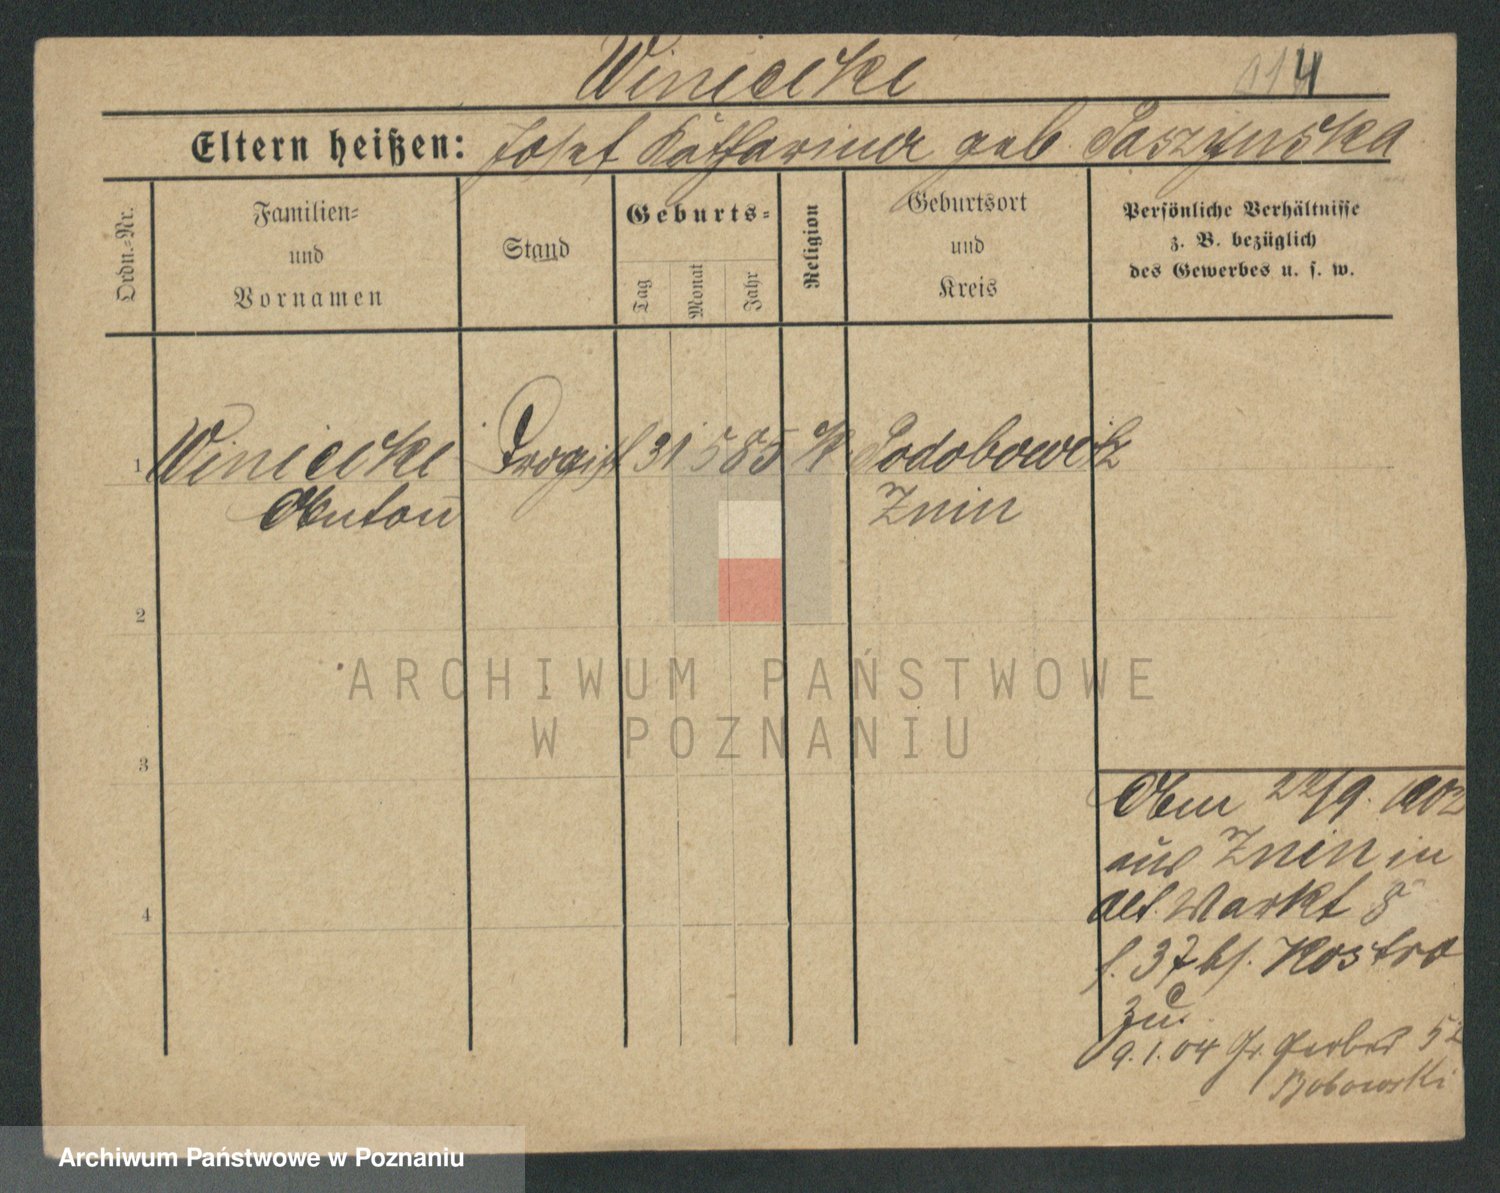 Winiecki
114
Eltern heißen: Josef Katharina geb Paszynska
Ordn.-Nr.
Familien-
und
Vornamen
Stand
Geburts-
Tag
Monat
Jahr
Religion
Geburtsort
und
Kreis
Persönliche Verhältnisse
z. B. bezüglich
des Gewerbes u. s. w.
1 Winiecki Drogist 31 5 85 K Podobowitz
Anton Znin
2
3
4
22/9. 1902
aus Znin in
Alt. Markt 8
37 bs. Kostro
zu.
9.1.04 Gr. Gerber 52
Bobowski
ARCHIWUM PAŃSTWOWE
W POZNANIU
Archiwum Państwowe w Poznaniu